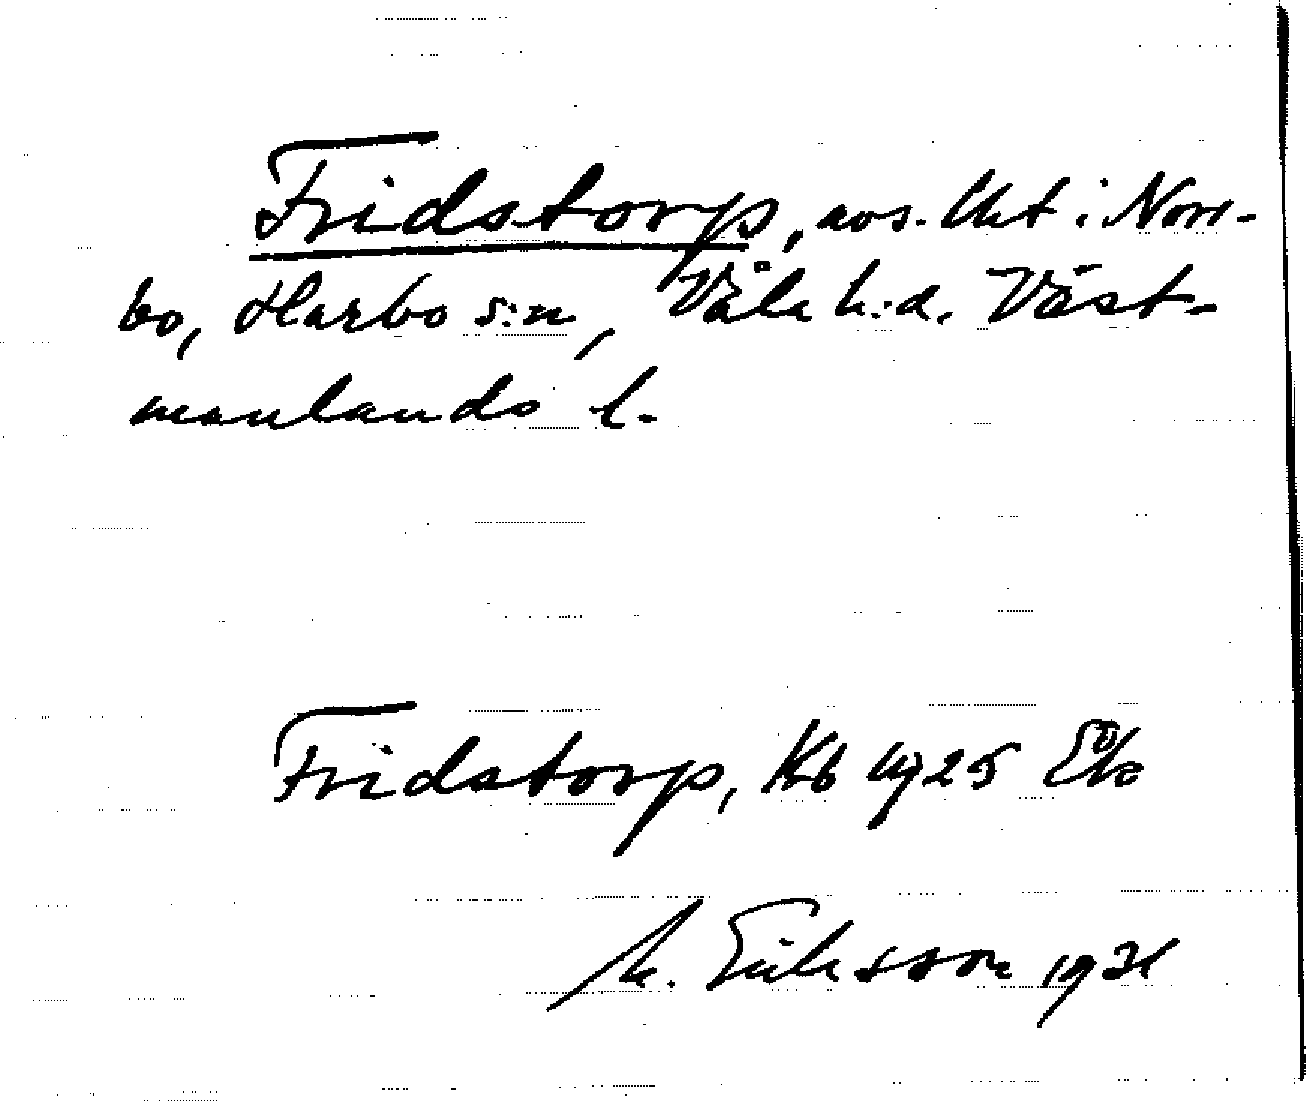 Fridstorp, avs. lht i Norr-
bo, Harbo s:n, Våla h:d. Väst-
manlands l.
Fridstorp, Kb 1925
M. Eriksson 1931